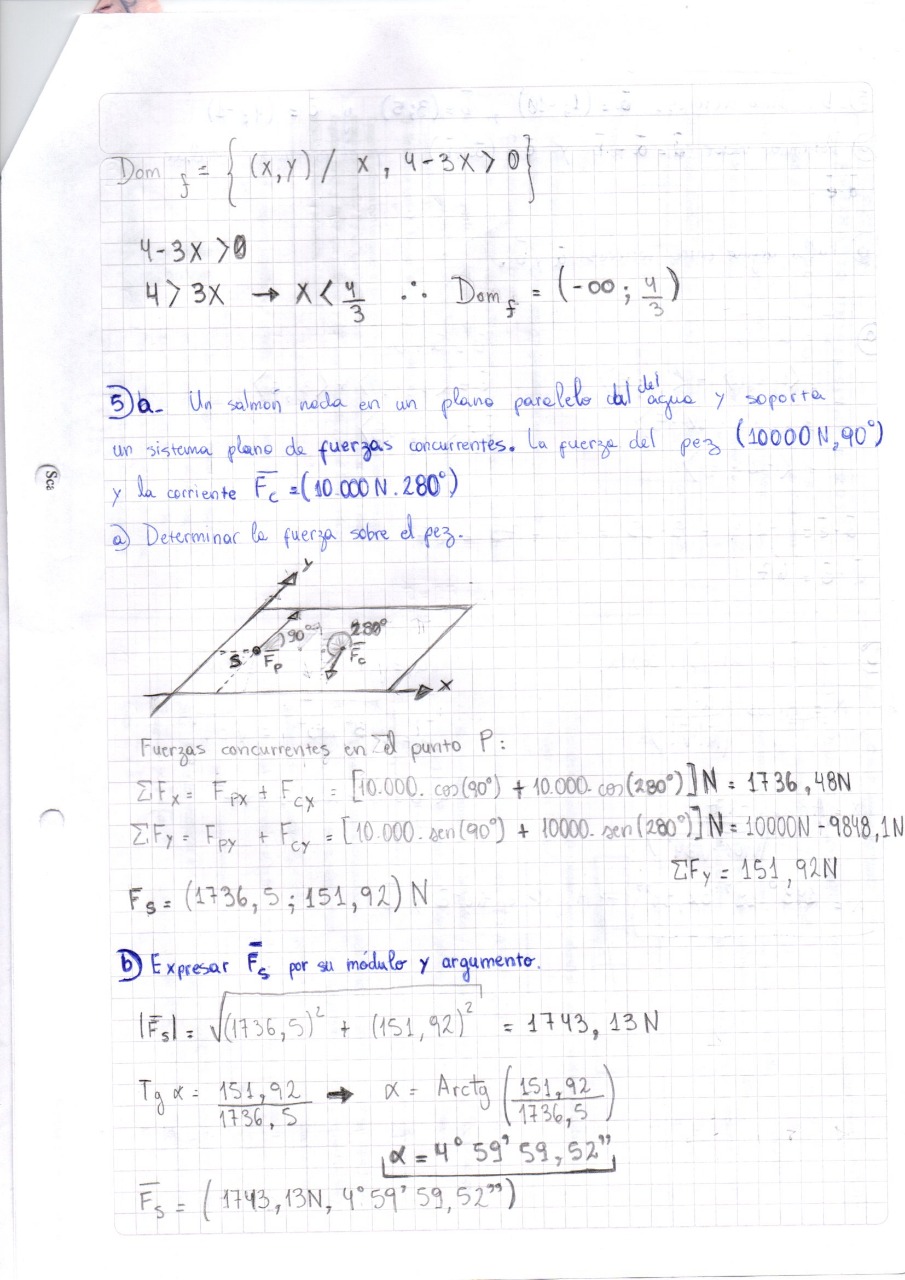 Dom f = { (x,y) / x , 4-3x > 0}
4-3x >0
4 > 3x → x < 4/3 ∴ Dom f = (-∞ ; 4/3)
5) a- Un salmón nada en un plano paralelo dal del agua y soporta
un sistema plano de fuerzas concurrentes. La fuerza del pez (10000 N, 90°)
y la corriente F̅c = (10.000 N . 280°)
a) Determinar la fuerza sobre el pez.
y
90° 280°
S F̅p F̅c
x
Fuerzas concurrentes en el punto P:
ΣFx = Fpx + Fcx = [10.000. cos(90°) + 10.000. cos(280°)] N = 1736,48N
ΣFy = Fpy + Fcy = [10.000. sen(90°) + 10000. sen(280°)] N = 10000N - 9848,1N
ΣFy = 151,92N
Fs = (1736,5 ; 151,92) N
b) Expresar F̅s por su módulo y argumento.
|F̅s| = √(1736,5)² + (151,92)² = 1743,13 N
Tg α = 151,92/1736,5 → α = Arctg (151,92/1736,5)
α = 4° 59' 59,52"
F̅s = (1743,13N, 4°59'59,52")
(Sca